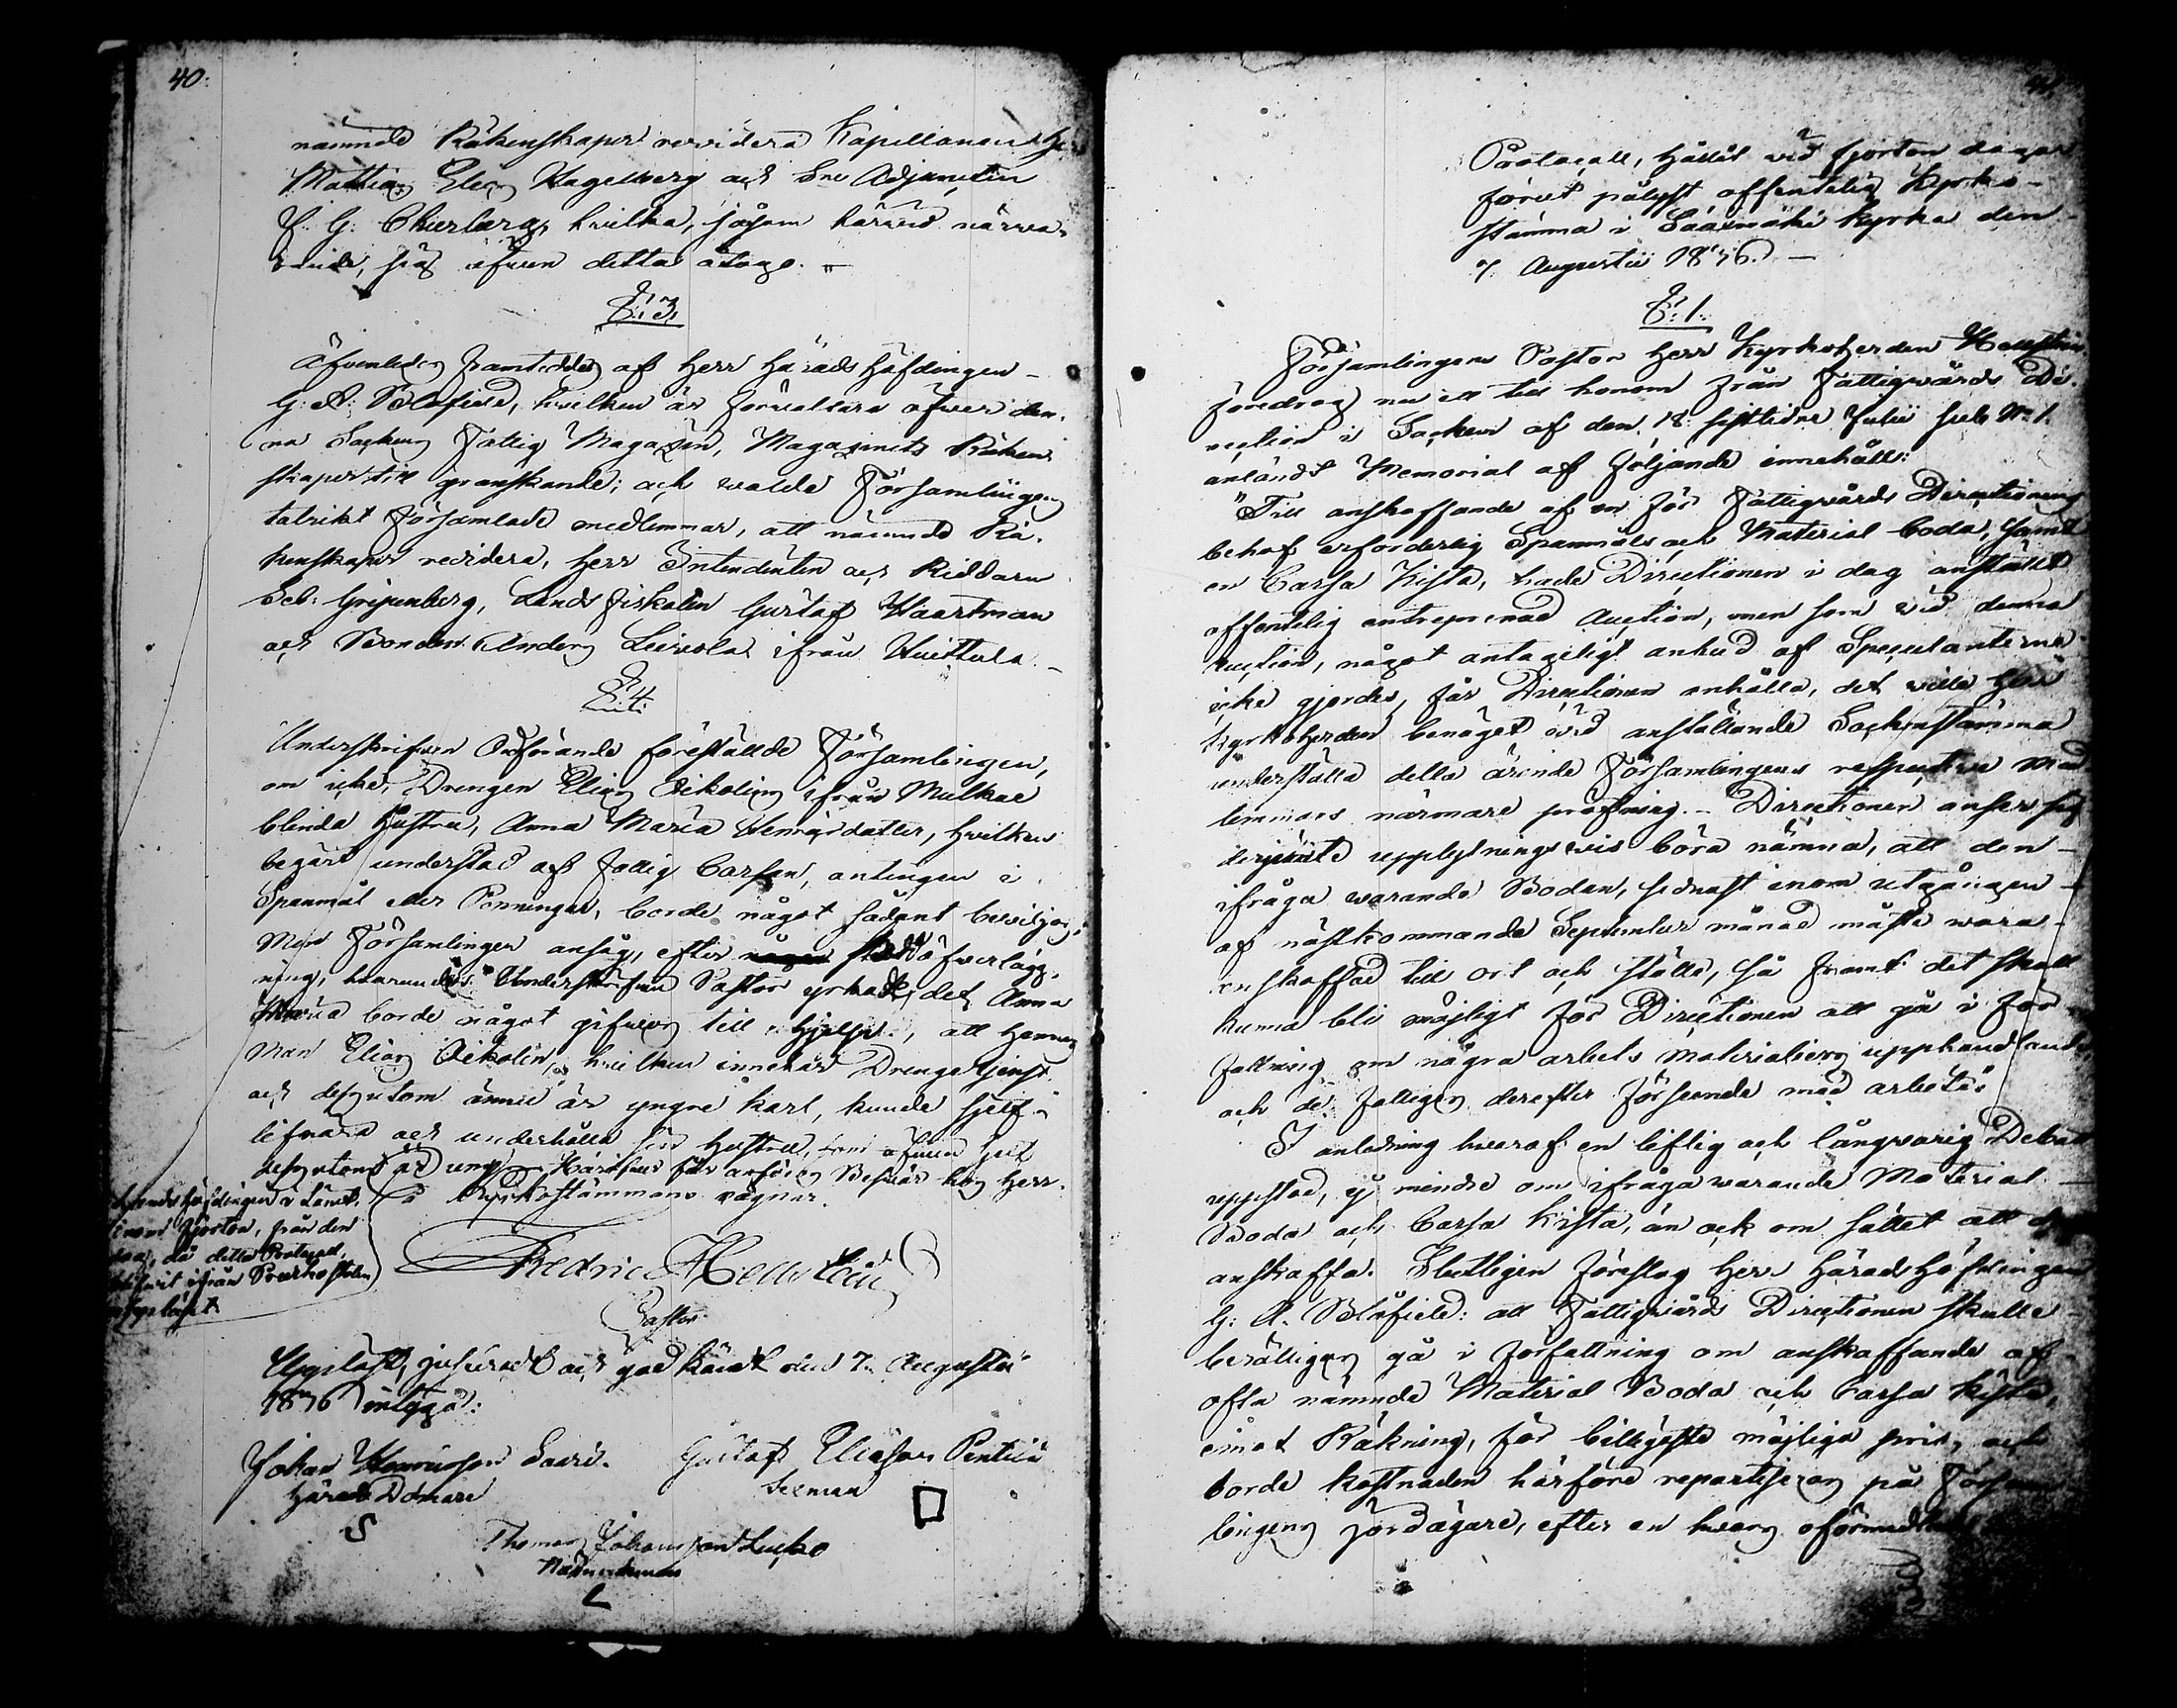 40.
nämnde Räkenskaper revidera Kapellanen H:r
Mathias Elias Hagelberg och v.
F. G. Chierberg, hvilka, såsom härvid närva-
rande, sig äfven detta åtogo. –
§. 3.
Äfvenledes framteddes af Herr Häradshöfdingen
G: A: Blåfield, hvilken är förvaltare öfver den-
na Sockens Fattig Magazin, Magazinets Räken-
skaper till granskande; och valde Församlingens
talrikt församlade medlemmar, att nämnde Rä-
kenskaper revidera, Herr Intendenten och Riddaren
Seb: Gripenberg, Landsfiskalen Gustaf Haartman
och Bonden Anders Leivola ifrån Huittula. –
§. 4.
Underskrifven Ordförande föreställde Församlingen,
om icke, Drengen Elias Oikolins ifrån Mälkiä
blinda Hustru, Anna Maria Henricsdotter, hvilken
begärt understöd af fattig Cassan, antingen i
Spanmål eller Penningar, borde något sådant beviljas;
Men Församlingen ansåg, efter skedd öfverlägg-
ning, hvarunder Underskrifven Pastor yrkade, det Anna
Maria borde något gifvas till hjelp, att hennes
man Elias Oikolin, hvilken innehar Drengetjenst,
och dessutom ännu är yngre karl, kunde sjelf
lifnära och underhålla sin Hustru, som äfven sjelf
dessutom är ung. Härifver får anföras Besvär hos Herr
Landshöfdingen i Länet,
inom fjorton, från den
dag, då detta Protocoll
blifvit ifrån Predikostolen
uppläst
På Kyrkostämmans vägnar.
Fredric Hellstein
Pastor.
Uppläst, justeradt och godkändt den 7. Augusti
1836 intyga:
Johan Henricsson Saari. Gustaf Eliasson Pentilä
Härads Domare Sexman
Thomas Johansson Lucko
Nämndeman
41.
Protocoll, hållit vid fjorton dagar
förut pålyst offentelig Kyrko-
stämma i Sääxmäki kyrka den
7. Augusti 1836. –
§. 1.
Församlingens Pastor Herr Kyrkoherden Hellstein
föredrog nu ett till honom från Fattigvårds Di-
rection i Socken af den 18 sistlidne Julii sub N:o 1.
anländt Memorial af följande innehåll:
"Till anskaffande af en för Fattigvårds Directionens
behof erforderlig Spanmåls och Material boda, samt
en Cassa Kista, hade Directionen i dag anstäldt
offentelig entreprenad Auction, men som vid denna
auction, något antageligt anbud af Speculanterne
icke gjordes, får Directionen anhålla, det ville Herr
Kyrkoherden benäget vid anställande Sockenstämma
underställa detta ärende Församlingens respective Med-
lemmars närmare pröfning. – Directionen anser sig
derjemte upplysningsvis böra nämna, att den
ifråga varande Bodan, sednast inom utgången
af nästkommande September månad måste vara
anskaffad till ort och ställe, så framt det skall
kunna bli möjligt för Directionen att gå i för-
fattning om några arbets materialiers upphandlande
och de fattigas derefter förseende med arbete."
I anledning hvaraf en liflig och långvarig Debatt
uppstod, ej mindre om ifrågavarande Material
Boda och Cassa Kista, än ock om sättet att dem
anskaffa. Slutligen föreslog Herr Häradshöfdingen
G: A. Blåfield: att Fattigvårds Directionen skulle
berättigas gå i författning om anskaffande af
ofta nämnde Material Boda och Cassa Kista,
emot Räkning, för billigaste möjliga pris, och
borde kostnaden härföre repartiseras på Försam-
lingens Jordägare, efter en hvars oförmedlade